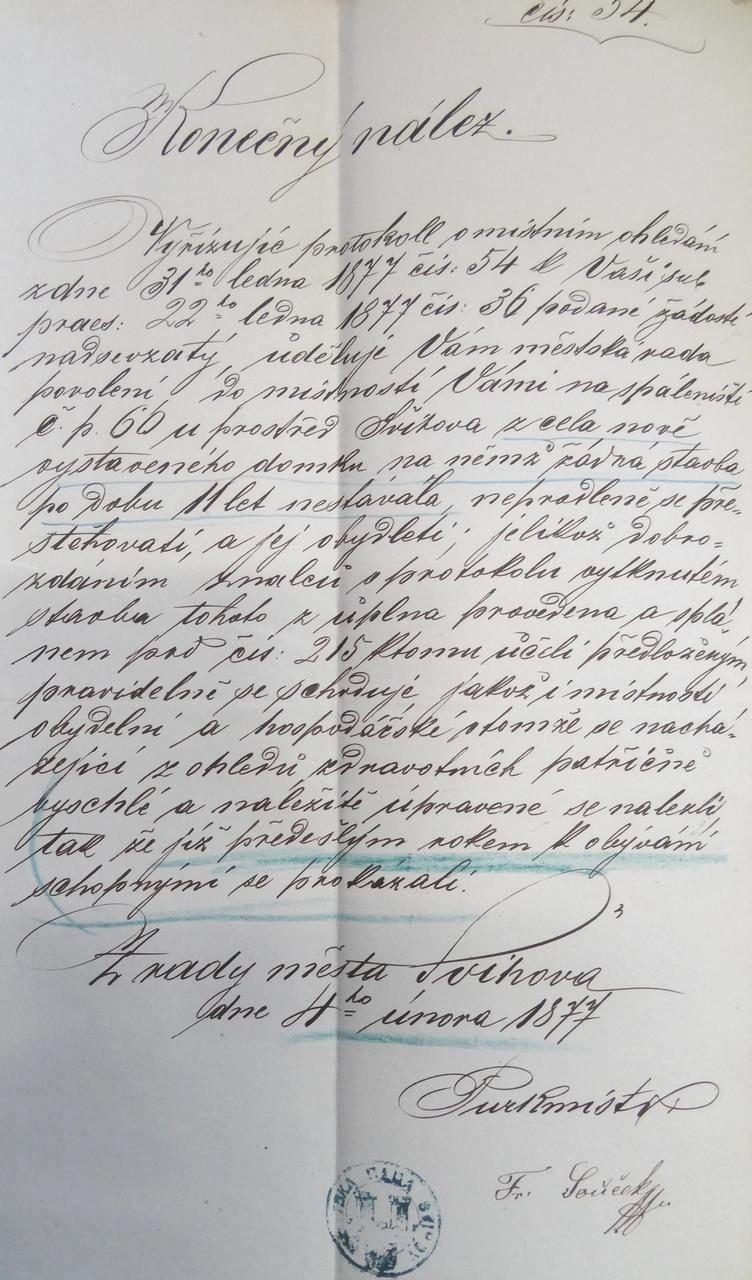 čís: 54.
Konečný nález.
Vyřizujíc protokoll o místním ohledání
z dne 31ho ledna 1877 čís: 54 k Vaší sub
praes: 22ho ledna 1877 čís: 36 podané žádosti
nadsevzatý, uděluje Vám městská rada
povolení, do místností Vámi na spáleništi
č. p. 60 u prostřed Švihova z cela nově
vystaveného domku na němž žádná stavba
po dobu 11 let nestávála, neprodleně se pře-
stěhovati, a jej obydleti; jelikož dobro-
zdáním znalců v protokolu vytknutém
stavba tohoto z úplna provedena a s plá
nem pod čís: 215 k tomu účeli předloženým,
pravidelně se schoduje jakož i místnosti
obydelní a hospodářské v tomže se nachá-
zející z ohledů zdravotních patřičně
vyschlé a naležitě upravené se nalezli,
tak že již předešlým rokem k obývání
schopnými se prokázali.
Z rady města Švihova
dne 4ho února 1877
Purkmistr
Fr. Souček